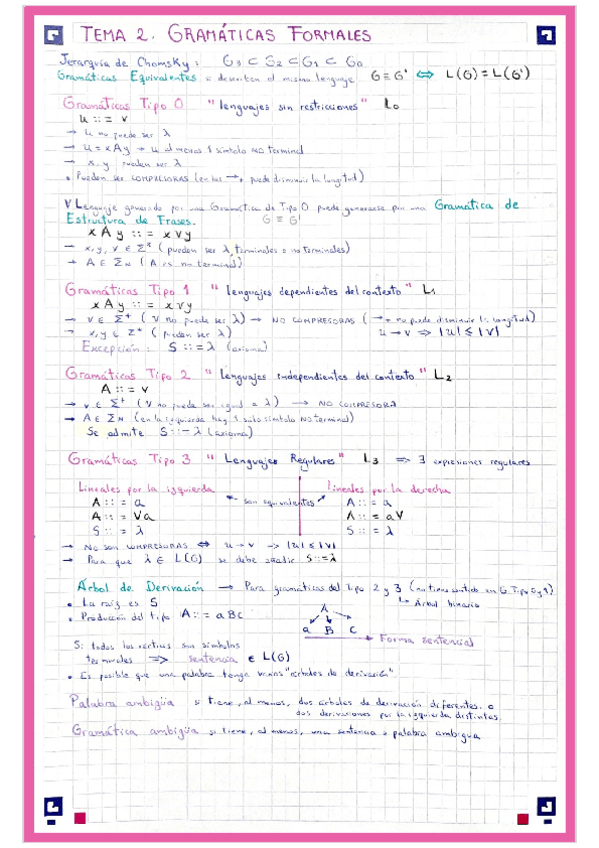 TEMA 2. GRAMÁTICAS FORMALES
Jerarquía de Chomsky: G3 ⊂ G2 ⊂ G1 ⊂ G0
Gramáticas Equivalentes = describen el mismo lenguaje G ≡ G' ⇔ L(G) = L(G')
Gramáticas Tipo 0 "lenguajes sin restricciones" L0
u ::= v
→ u no puede ser λ
→ u = xAy → u al menos 1 símbolo no terminal
→ x, y pueden ser λ
• Pueden ser COMPRESORAS (en las →, puede disminuir la longitud)
∀ Lenguaje generado por una Gramática de Tipo 0 puede generarse por una Gramática de
Estructura de Frases. G ≡ G'
x A y ::= x v y
→ x, y, v ∈ Σ* (pueden ser λ, terminales o no terminales)
→ A ∈ ΣN (A es no terminal)
Gramáticas Tipo 1 "lenguajes dependientes del contexto" L1
x A y ::= x v y
→ v ∈ Σ+ (v no puede ser λ) → NO COMPRESORAS (→ no puede disminuir la longitud)
→ x, y ∈ Σ* (pueden ser λ) u → v ⇒ |u| ≤ |v|
Excepción: S ::= λ (axioma)
Gramáticas Tipo 2 "lenguajes independientes del contexto" L2
A ::= v
→ v ∈ Σ+ (v no puede ser igual a λ) → NO COMPRESORA
→ A ∈ ΣN (en la izquierda hay 1 solo símbolo NO terminal)
Se admite S ::= λ (axioma)
Gramáticas Tipo 3 "Lenguajes Regulares" L3 ⇒ ∃ expresiones regulares
Lineales por la izquierda ← son equivalentes → Lineales por la derecha
A ::= a A ::= a
A ::= Va A ::= aV
S ::= λ S ::= λ
→ No son COMPRESORAS ⇔ u → v → |u| ≤ |v|
→ Para que λ ∈ L(G) se debe añadir S ::= λ
Árbol de Derivación → Para gramáticas del tipo 2 y 3 (no tiene sentido en G. Tipo 0 y 1)
• La raíz es S ↳ Árbol binario
• Producción del tipo A ::= aBc A
a B C → Forma sentencial
Si todos los vértices son símbolos
terminales ⇒ sentencia ∈ L(G)
• Es posible que una palabra tenga varios "árboles de derivación"
Palabra ambigüa si tiene, al menos, dos árboles de derivación diferentes o
dos derivaciones por la izquierda distintas.
Gramática ambigüa si tiene, al menos, una sentencia o palabra ambigua